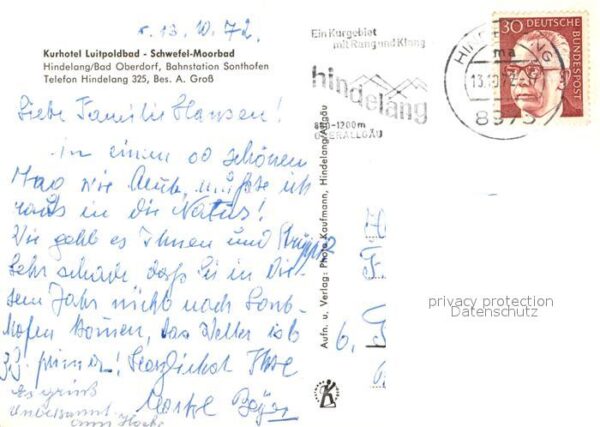 13.10.72.
Kurhotel Luitpoldbad - Schwefel-Moorbad
Hindelang/Bad Oberdorf, Bahnstation Sonthofen
Telefon Hindelang 325, Bes. A. Groß
Liebe Familie Hansen!
An einem so schönen
Tag wie heute, müßte ich
raus in die Natur!
Wie geht es Ihnen und
Sehr schade daß Sie in die-
sem Jahr nicht nach Sont-
hofen kommen, das Wetter ist
prima! Herzlichst Ihre
Es grüßt
unbekannt
Ein Kurgebiet
mit Rang und Klang
hindelang
850-1200m
OBERALLGÄU
30 DEUTSCHE
BUNDESPOST
HINDELANG
ma
13.10.72
8973
Aufn. u. Verlag: Photo Kaufmann, Hindelang/Allgäu
H
F
6.
privacy protection
Datenschutz
K